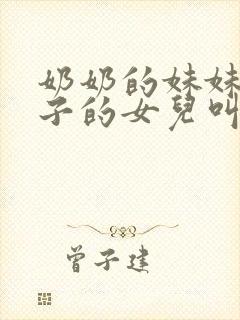 奶奶的妹妹
子的女兒叫
曾子建